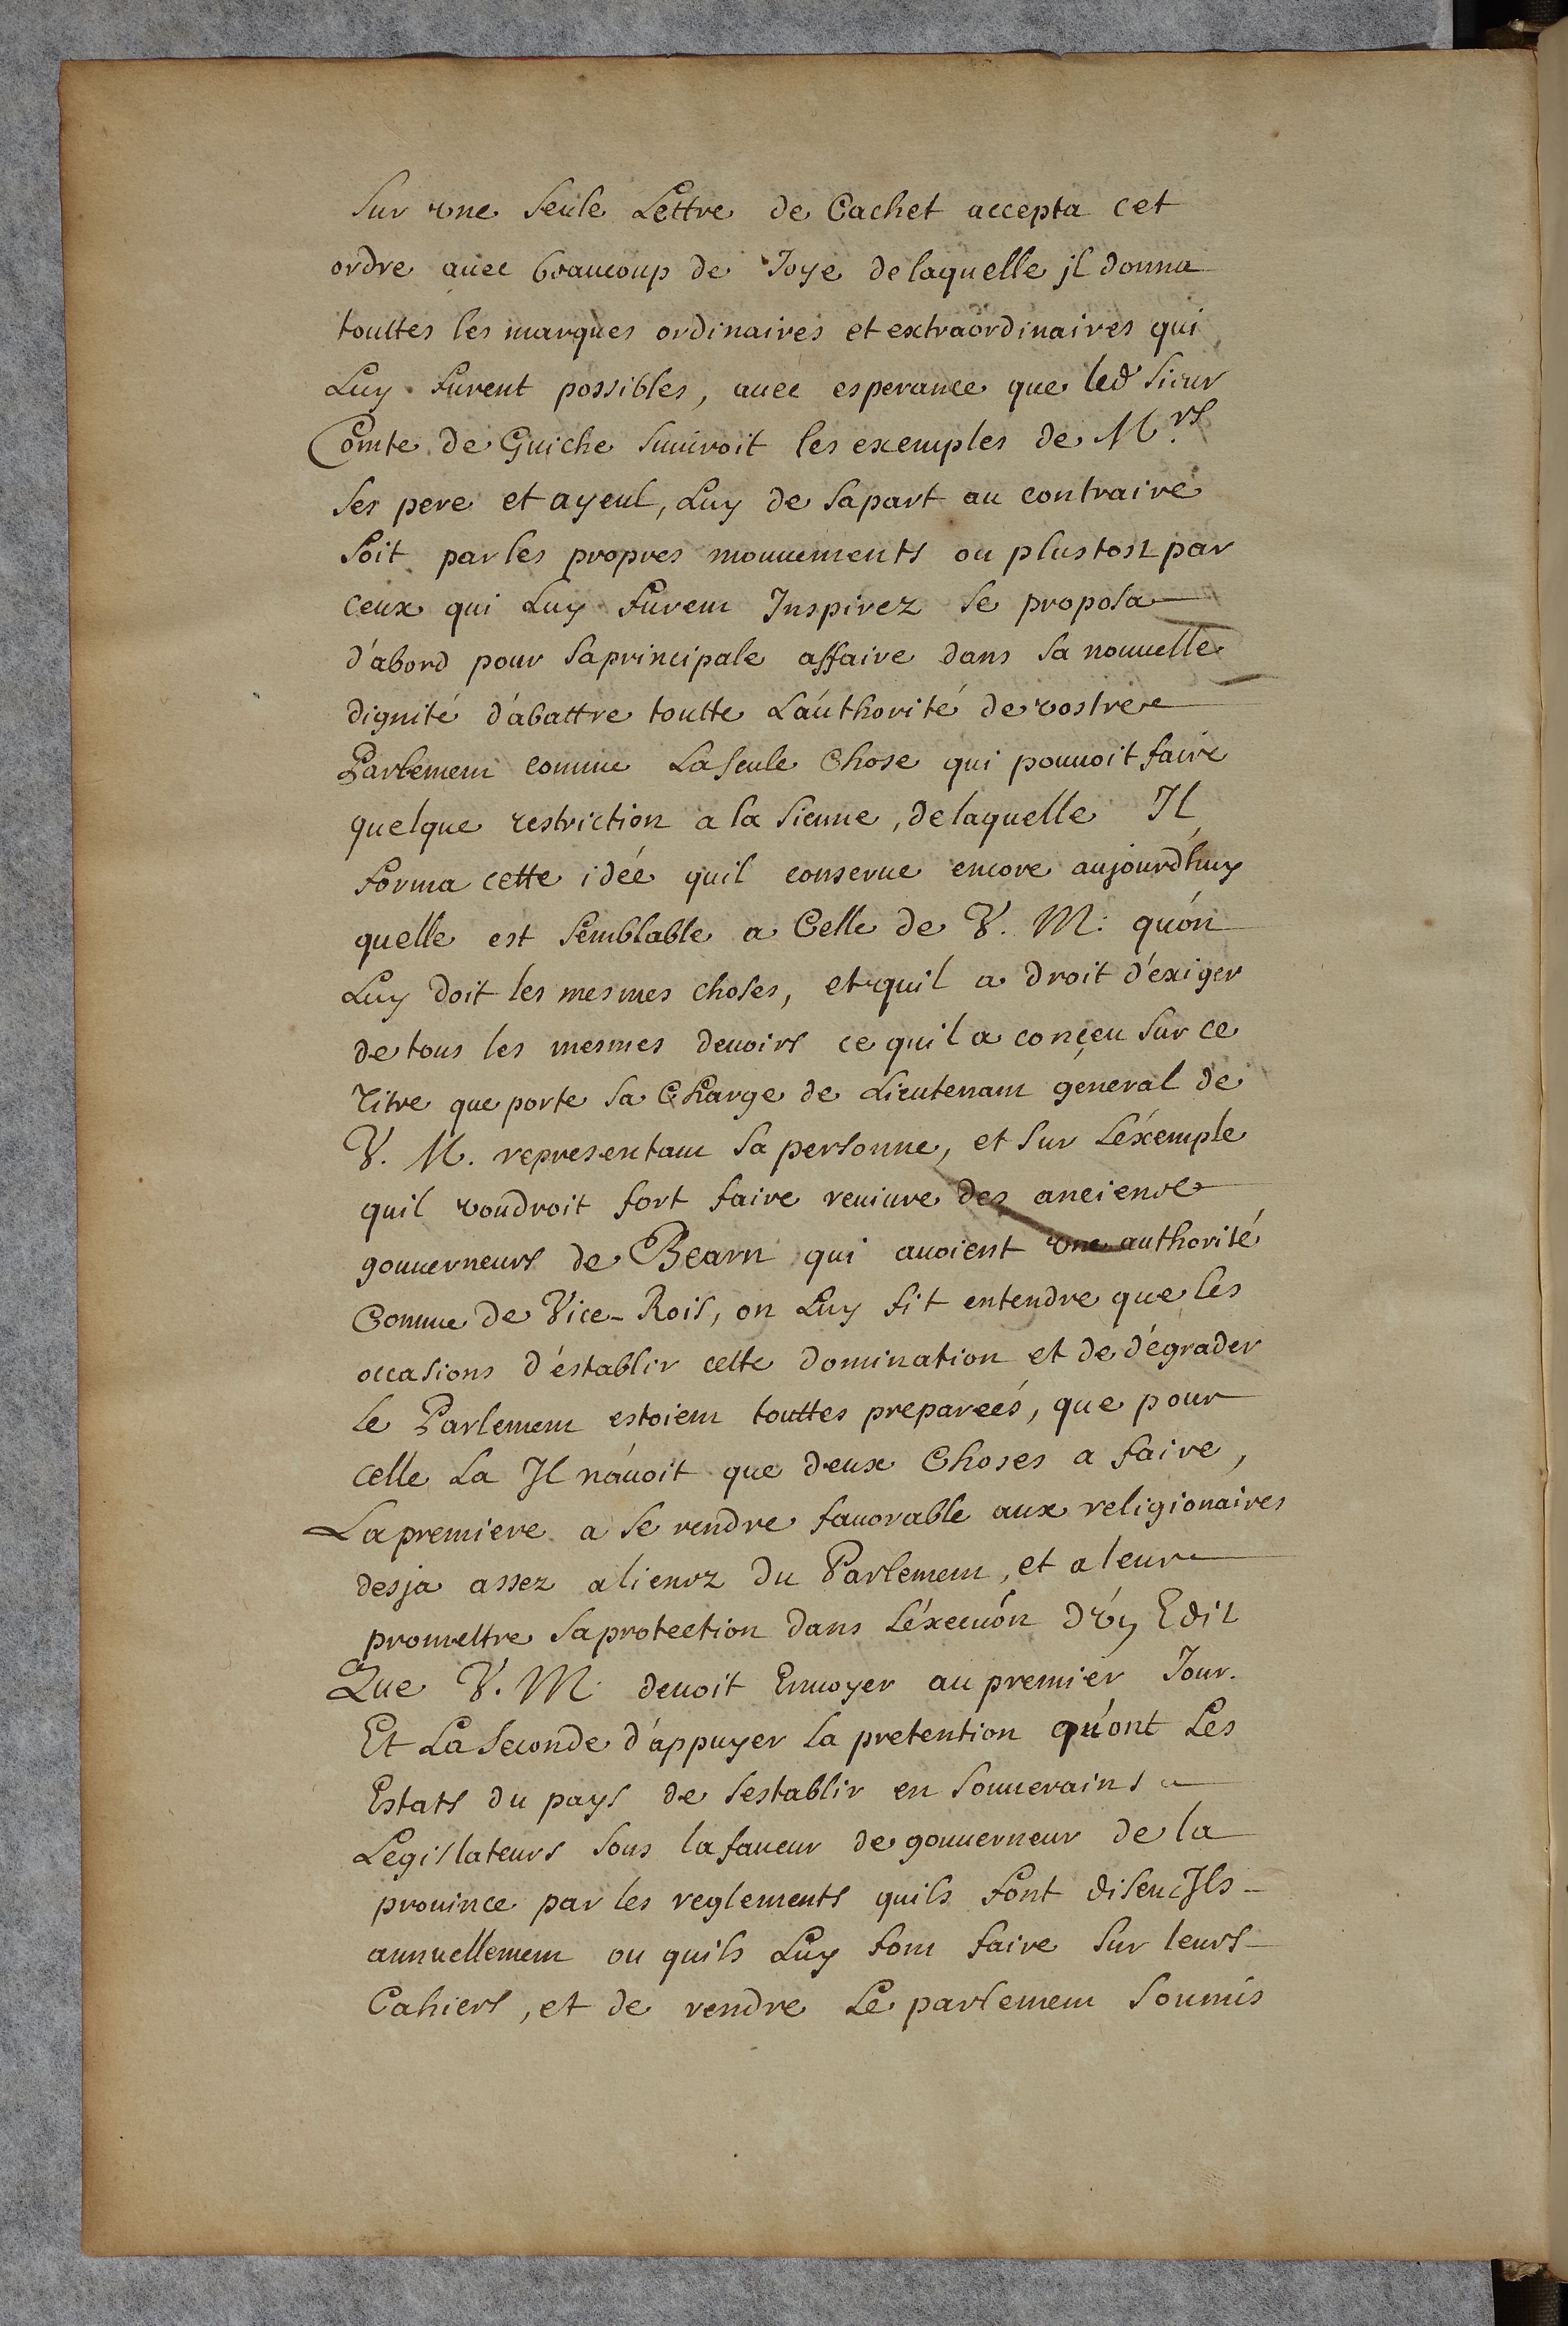 Sur vne Seule Lettre de Cachet accepta cet
ordre auec beaucoup de Joye de laquelle jl donna
touttes les marques ordinaires et extraordinaires qui
Luy furent possibles, auec esperance que led Sieur
Comte de Guiche Suiuroit les exemples de M.rs
Ses pere et ayeul, Luy de Sa part au contraire
Soit par les propres mouuements ou plustost par
Ceux qui Luy furent Inspirez Se proposa
d'abord pour Sa principale affaire dans Sa nouuelle
dignité d'abattre toutte L'authorité de vostre
Parlement comme La seule Chose qui pouuoit faire
quelque restriction a la Sienne, de laquelle Il
forma cette idée quil conserue encore aujourd'huy
quelle est Semblable a Celle de V. M. qu'on
Luy doit les mesmes choses, et quil a droit d'exiger
de tous les mesmes deuoirs ce quil a conçeu Sur ce
Titre que porte Sa Charge de Lieutenant general de
V. M. representant Sa personne, et Sur L'exemple
quil voudroit fort faire reuiure des anciens
gouuerneurs de Bearn qui auoient vne authorité
Comme de Vice-Rois, on Luy fit entendre que les
occasions d'establir cette domination et de dégrader
le Parlement estoient touttes preparées, que pour
celle La Il n'auoit que deux Choses a faire,
La premiere a Se rendre fauorable aux religionaires
desja assez alienez du Parlement, et a leur
promettre Sa protection dans L'execuôn d'vn Edit
Que V. M. deuoit Enuoyer au premier Jour.
Et La Seconde d'appuyer la pretention qu'ont Les
Estats du pays de Sestablir en Souuerains
Legislateurs Sous la faueur de gouuerneur de la
prouince par les reglements quils font disent Ils
annuellement ou quils Luy font faire Sur leurs
Cahiers, et de rendre Le parlement Soumis